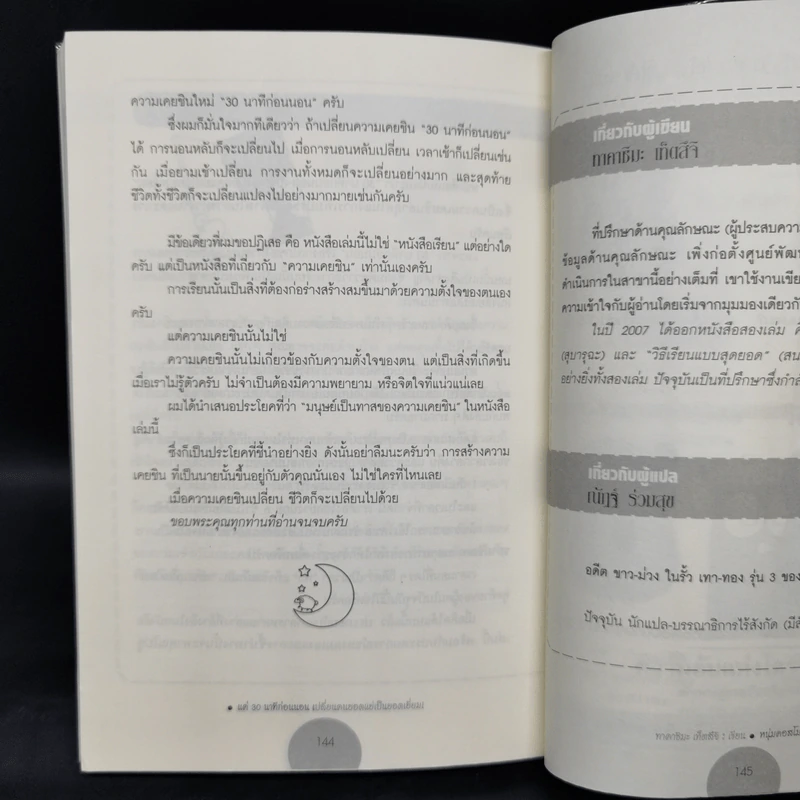 ความเคยชินใหม่ "30 นาทีก่อนนอน" ครับ
ซึ่งผมก็มั่นใจมากทีเดียวว่า ถ้าเปลี่ยนความเคยชิน "30 นาทีก่อนนอน"
ได้ การนอนหลับก็จะเปลี่ยนไป เมื่อการนอนหลับเปลี่ยน เวลาเช้าก็เปลี่ยนเช่น
กัน เมื่อยามเช้าเปลี่ยน การงานทั้งหมดก็จะเปลี่ยนอย่างมาก และสุดท้าย
ชีวิตทั้งชีวิตก็จะเปลี่ยนแปลงไปอย่างมากมายเช่นกันครับ
มีข้อเดียวที่ผมขอปฏิเสธ คือ หนังสือเล่มนี้ไม่ใช่ "หนังสือเรียน" แต่อย่างใด
ครับ แต่เป็นหนังสือที่เกี่ยวกับ "ความเคยชิน" เท่านั้นเองครับ
การเรียนนั้นเป็นสิ่งที่ต้องก่อร่างสร้างสมขึ้นมาด้วยความตั้งใจของตนเอง
ครับ
แต่ความเคยชินนั้นไม่ใช่
ความเคยชินนั้นไม่เกี่ยวข้องกับความตั้งใจของตน แต่เป็นสิ่งที่เกิดขึ้น
เมื่อเราไม่รู้ตัวครับ ไม่จำเป็นต้องมีความพยายาม หรือจิตใจที่แน่วแน่เลย
ผมได้นำเสนอประโยคที่ว่า "มนุษย์เป็นทาสของความเคยชิน" ในหนังสือ
เล่มนี้
ซึ่งก็เป็นประโยคที่ชี้นำอย่างยิ่ง ดังนั้นอย่าลืมนะครับว่า การสร้างความ
เคยชิน ที่เป็นนายนั้นขึ้นอยู่กับตัวคุณนั่นเอง ไม่ใช่ใครที่ไหนเลย
เมื่อความเคยชินเปลี่ยน ชีวิตก็จะเปลี่ยนไปด้วย
ขอบพระคุณทุกท่านที่อ่านจนจบครับ
แค่ 30 นาทีก่อนนอน
144
เกี่ยวกับผู้เขียน
ทาคาชิมะ เท็ตสึจิ
ที่ปรึกษาด้านคุณลักษณะ (ผู้ประสบความ
ข้อมูลด้านคุณลักษณะ เพิ่งก่อตั้งศูนย์พัฒน
ดำเนินการในสาขานี้อย่างเต็มที่ เขาใช้งานเขีย
ความเข้าใจกับผู้อ่านโดยเริ่มจากมุมมองเดียวกั
ในปี 2007 ได้ออกหนังสือสองเล่ม คื
(สุบารุฉะ) และ "วิธีเรียนแบบสุดยอด" (สน
อย่างยิ่งทั้งสองเล่ม ปัจจุบันเป็นที่ปรึกษาซึ่งกำลั
เกี่ยวกับผู้แปล
ณัฏฐ์ ร่วมสุข
อดีต ขาว-ม่วง ในรั้ว เทา-ทอง รุ่น 3 ของ
ปัจจุบัน นักแปล-บรรณาธิการไร้สังกัด (มีสั
ทาคาชิมะ เท็ตสึจิ : เขียน
145